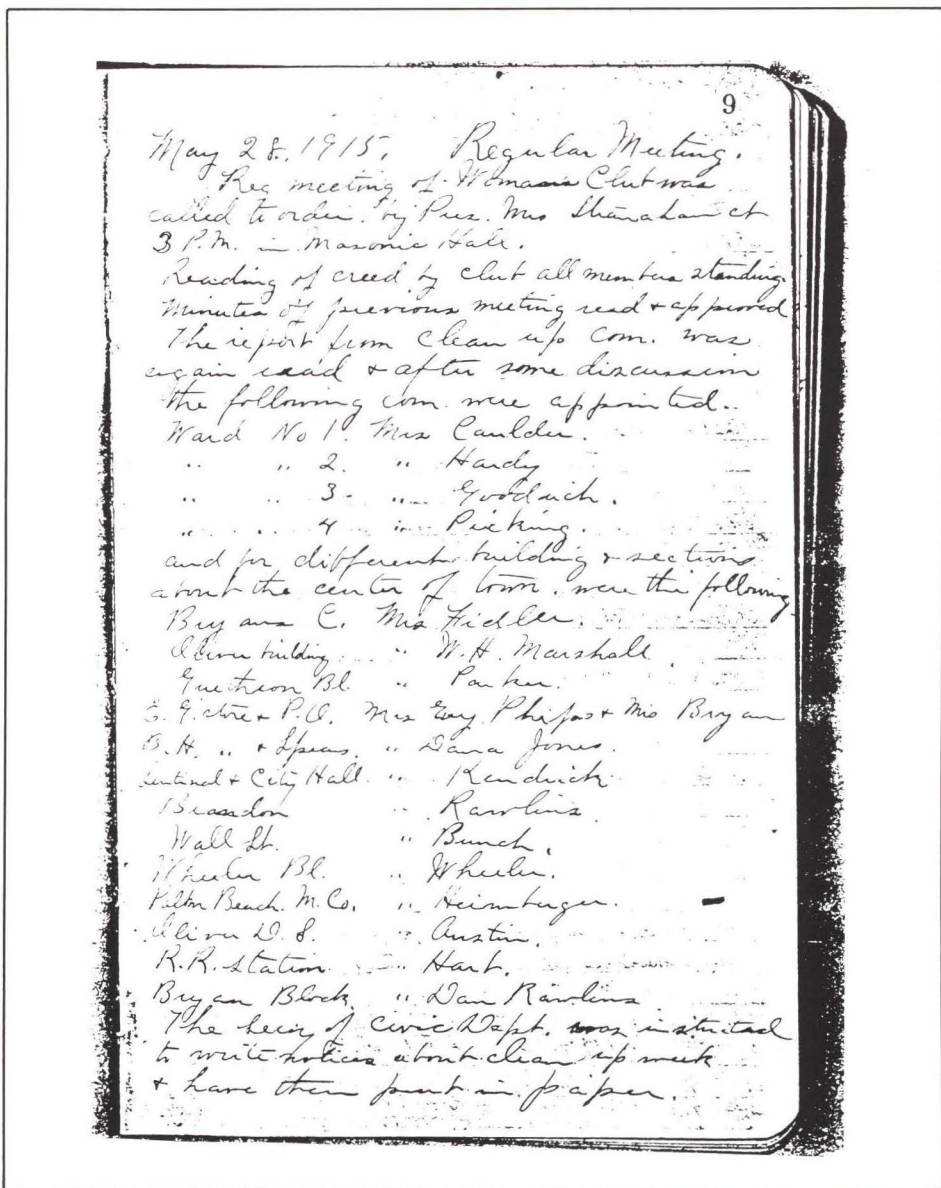 9
May 28, 1915. Regular Meeting.
Reg meeting of Womans Club was
called to order by Pres. Mrs Stranahan at
3 P.M. in Masonic Hall.
Reading of creed by club all members standing.
Minutes of previous meeting read & approved
The report from clean up com. was
again read & after some discussion
the following com. were appointed.
Ward No 1. Mrs Caulder.
" " 2. " Hardy
" " 3. " Goodrich.
" " 4 " Picking.
and for different building & sections
about the center of town. were the following
Bryans C. Mrs Fidler.
Oliver building " W. H. Marshall
Bl. " Parker.
E. G. store & P.O. Mrs Phifas & Mrs Bryan
B. H. " & Spears " Dana Jones.
Sentinal & City Hall " Kendrick
Brandon " Rawlins
Wall St. " Bunch.
Wheeler Bl. " Wheeler.
Palm Beach M. Co. " Heimburger.
Oliver D. S. " Austin.
R.R. Station " Hart.
Bryan Block " Dan Rawlins
The Secy of Civic Dept. was instructed
to write notices about clean up week
& have them put in paper.